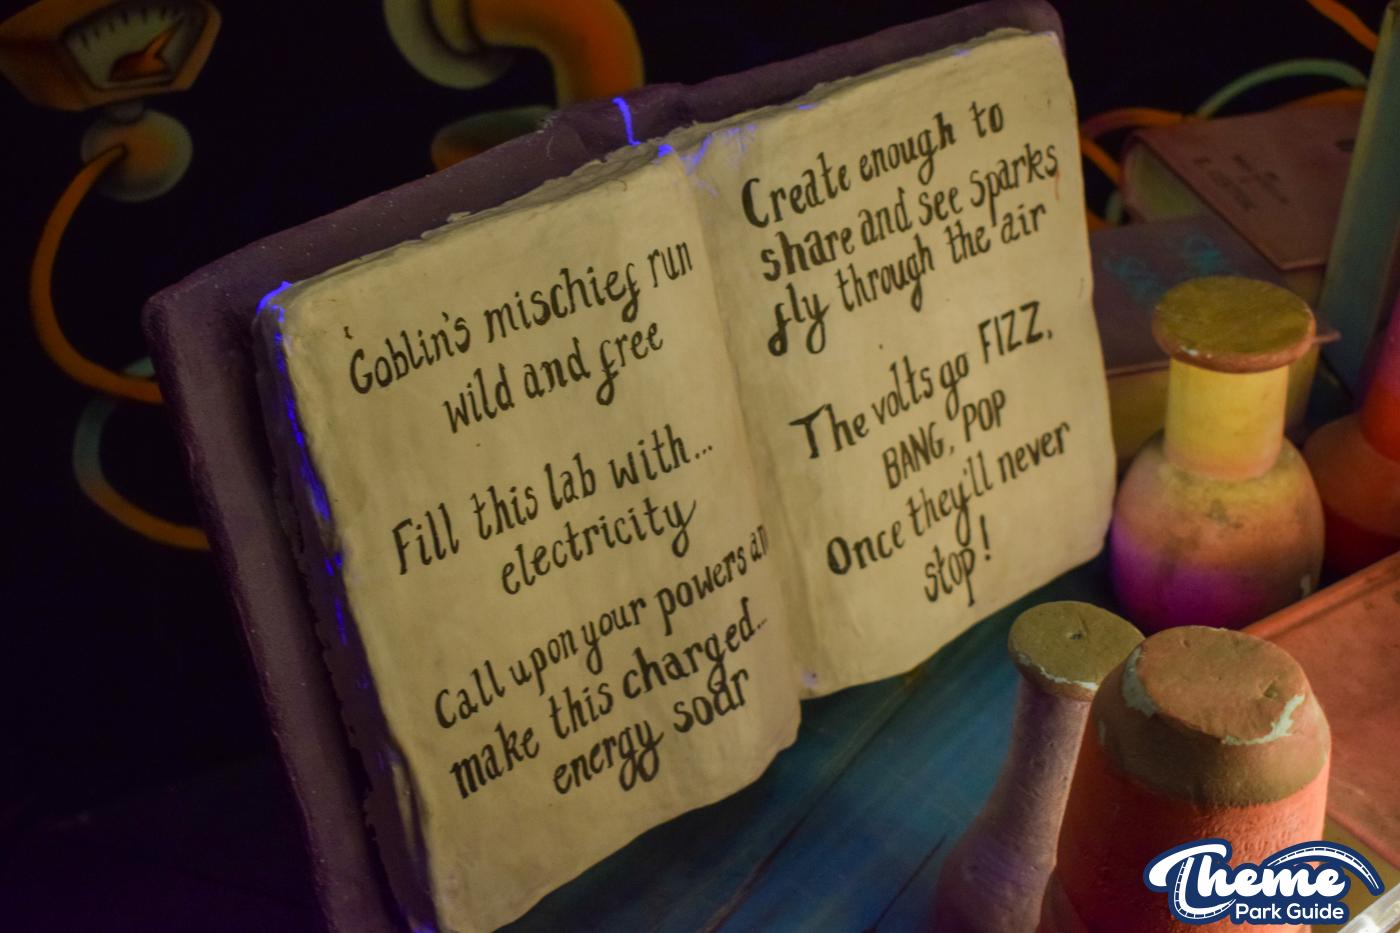 Goblin's mischief run
wild and free
Fill this lab with...
electricity
Call upon your powers an
make this charged...
energy soar
Create enough to
share and see sparks
fly through the air
The volts go FIZZ,
BANG, POP
Once they'll never
stop!
Theme
Park Guide